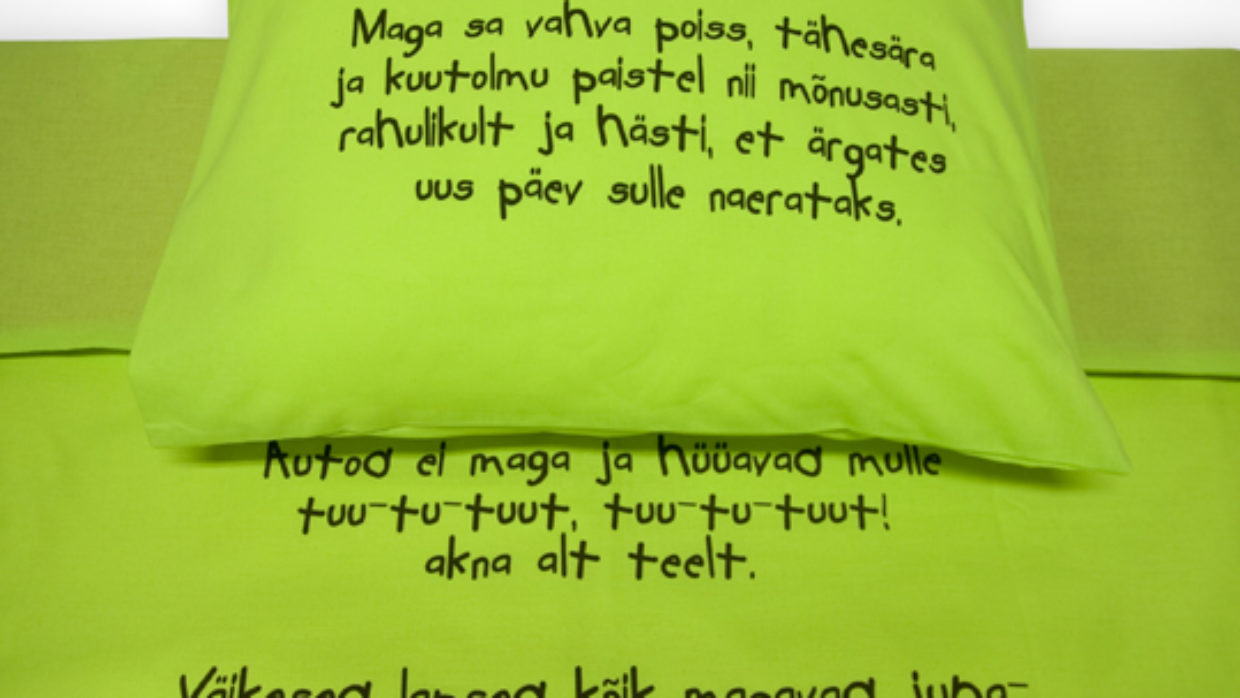 Maga sa vahva poiss, tähesära
ja kuutolmu paistel nii mõnusasti,
rahulikult ja hästi, et ärgates
uus päev sulle naerataks.
Autod ei maga ja hüüavad mulle
tuu-tu-tuut, tuu-tu-tuut!
akna alt teelt.
Väikesed lapsed kõik magavad juba-